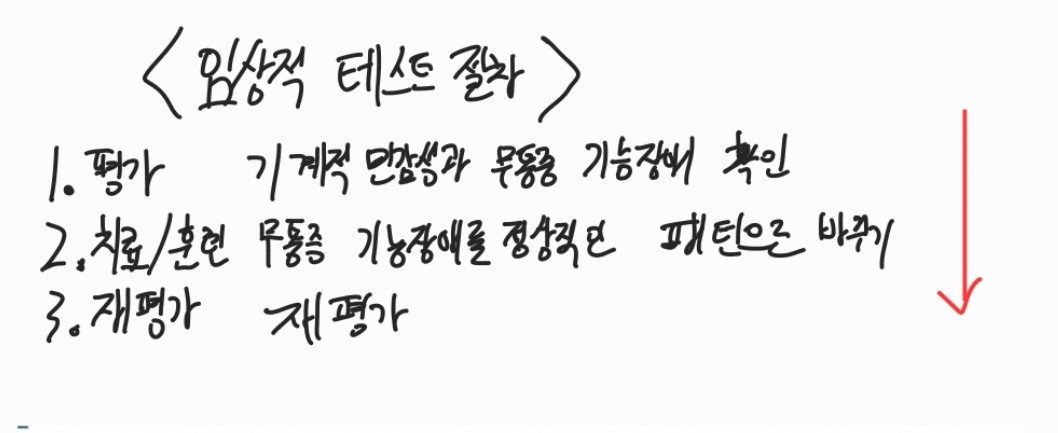 <임상적 테스트 절차>
1. 평가 기계적 민감성과 무통증 기능장애 확인
2. 치료/훈련 무통증 기능장애를 정상적인 패턴으로 바꾸기
3. 재평가 재평가